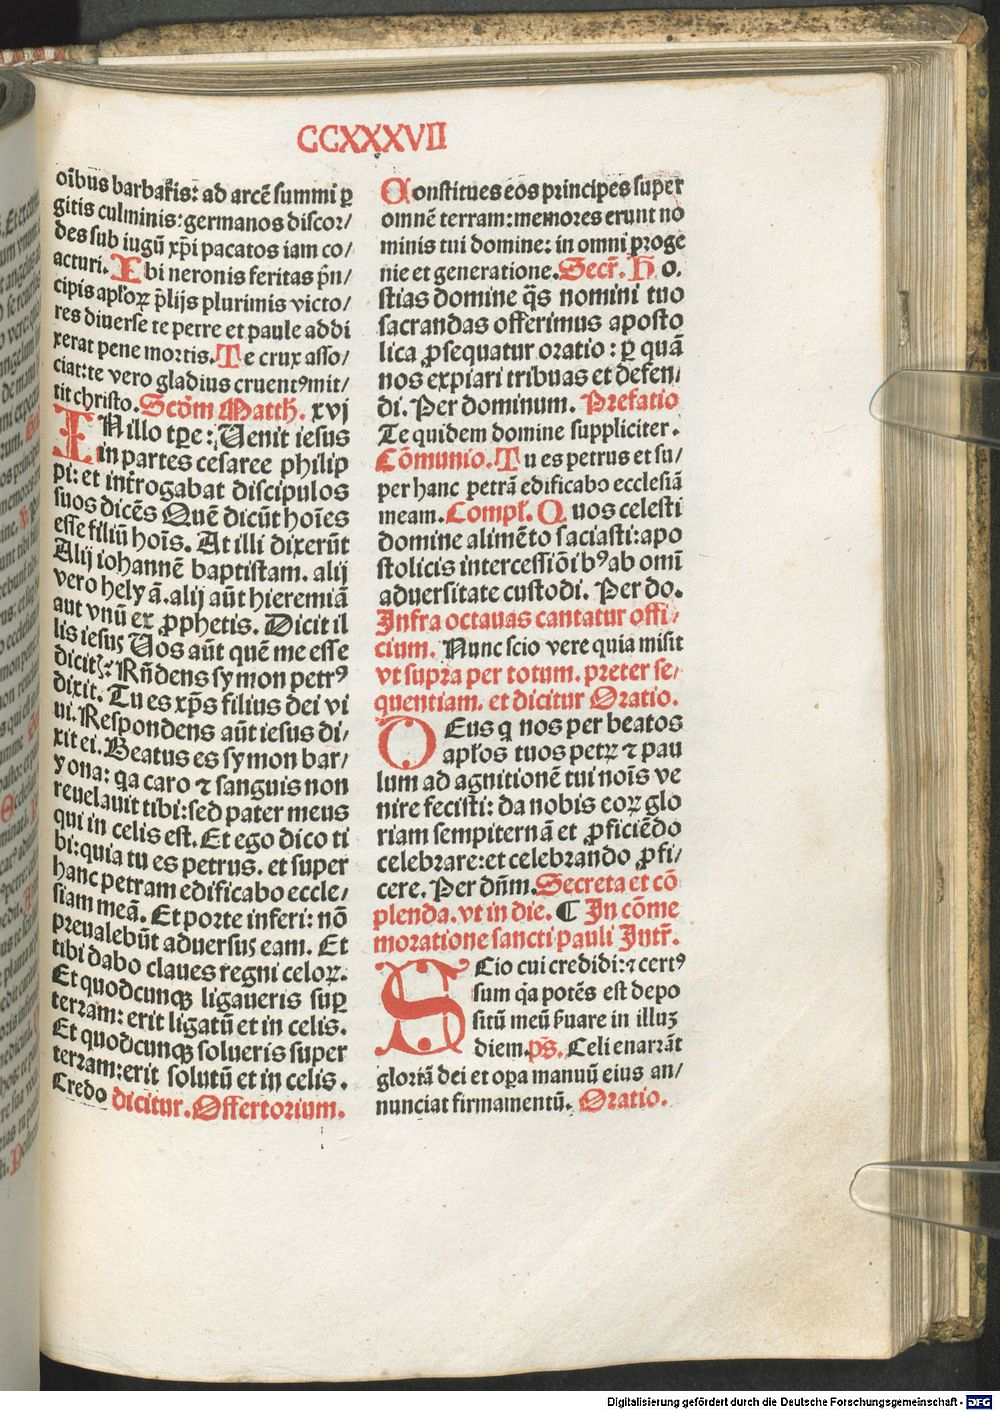 CCXXXVII
oībus barbaris: ad arcē summi ꝑ
gitis culminis: germanos discor/
des sub iugū xp̄i pacatos iam co/
acturi. Ibi neronis feritas p̄n/
cipis apl'oꝝ p̄lijs plurimis victo/
res diuerse te petre et paule addi
xerat pene mortis. Te crux asso/
ciat: te vero gladius cruentꝰ mit/
tit christo. Scd'm Matth. xvj
IN illo tꝑe: Uenit iesus
in partes cesaree philip
pi: et interrogabat discipulos
suos dicēs Quē dicūt hoīes
esse filiū hoīs. At illi dixerūt
Alij iohannē baptistam. alij
vero helyā. alij aūt hieremiā
aut vnū ex ꝓphetis. Dicit il
lis iesus Uos aūt quē me esse
dicitis: Rn̄dens symon petrꝰ
dixit. Tu es xp̄s filius dei vi
ui. Respondens aūt iesus di/
xit ei. Beatus es symon bar/
yona: qa caro ⁊ sanguis non
reuelauit tibi: sed pater meus
qui in celis est. Et ego dico ti
bi: quia tu es petrus. et super
hanc petram edificabo eccle/
siam meā. Et porte inferi: nō
preualebūt aduersus eam. Et
tibi dabo claues regni celoꝝ.
Et quodcunqꝫ ligaueris suꝑ
terram: erit ligatū et in celis.
Et quodcunqꝫ solueris super
terram: erit solutū et in celis.
Credo dicitur. Offertorium.
Constitues eos principes super
omnē terram: memores erunt no
minis tui domine: in omni proge
nie et generatione. Secr. Ho.
stias domine q̄s nomini tuo
sacrandas offerimus aposto
lica ꝓsequatur oratio: ꝑ quā
nos expiari tribuas et defen/
di. Per dominum. Prefatio
Te quidem domine suppliciter.
Cōmunio. Tu es petrus et su/
per hanc petrā edificabo ecclesiā
meam. Compl'. Quos celesti
domine alimēto saciasti: apo
stolicis intercessiōibꝰ ab omī
aduersitate custodi. Per do.
Infra octauas cantatur offi/
cium. Nunc scio vere quia misit
vt supra per totum. preter se/
quentiam. et dicitur Oratio.
DEus q nos per beatos
apl'os tuos petrꝝ ⁊ pau
lum ad agnitionē tui noīs ve
nire fecisti: da nobis eoꝝ glo
riam sempiternā et ꝓficiēdo
celebrare: et celebrando ꝓfi/
cere. Per dn̄m. Secreta et cō
plenda. vt in die. ¶ In cōme
moratione sancti pauli Intr.
SCio cui credidi: ⁊ certꝰ
sum qa potēs est depo
sitū meū ẜuare in illuꝫ
diem. ps. Celi enarrāt
gloriā dei et oꝑa manuū eius an/
nunciat firmamentū. Oratio.
Digitalisierung gefördert durch die Deutsche Forschungsgemeinschaft - DFG